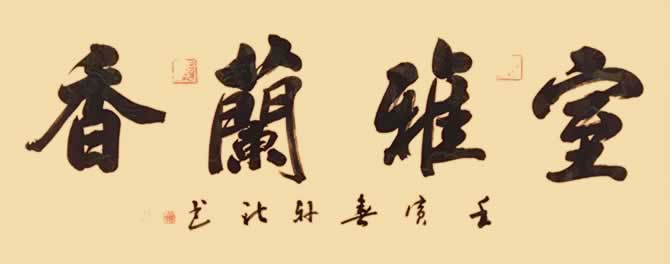 室雅蘭香
壬寅春书